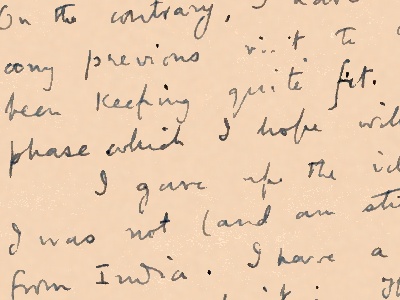 On the contrary, I have
my previous visit to
been keeping quite fit.
phase which I hope will
I gave up the
I was not (and am still
from India. I have a